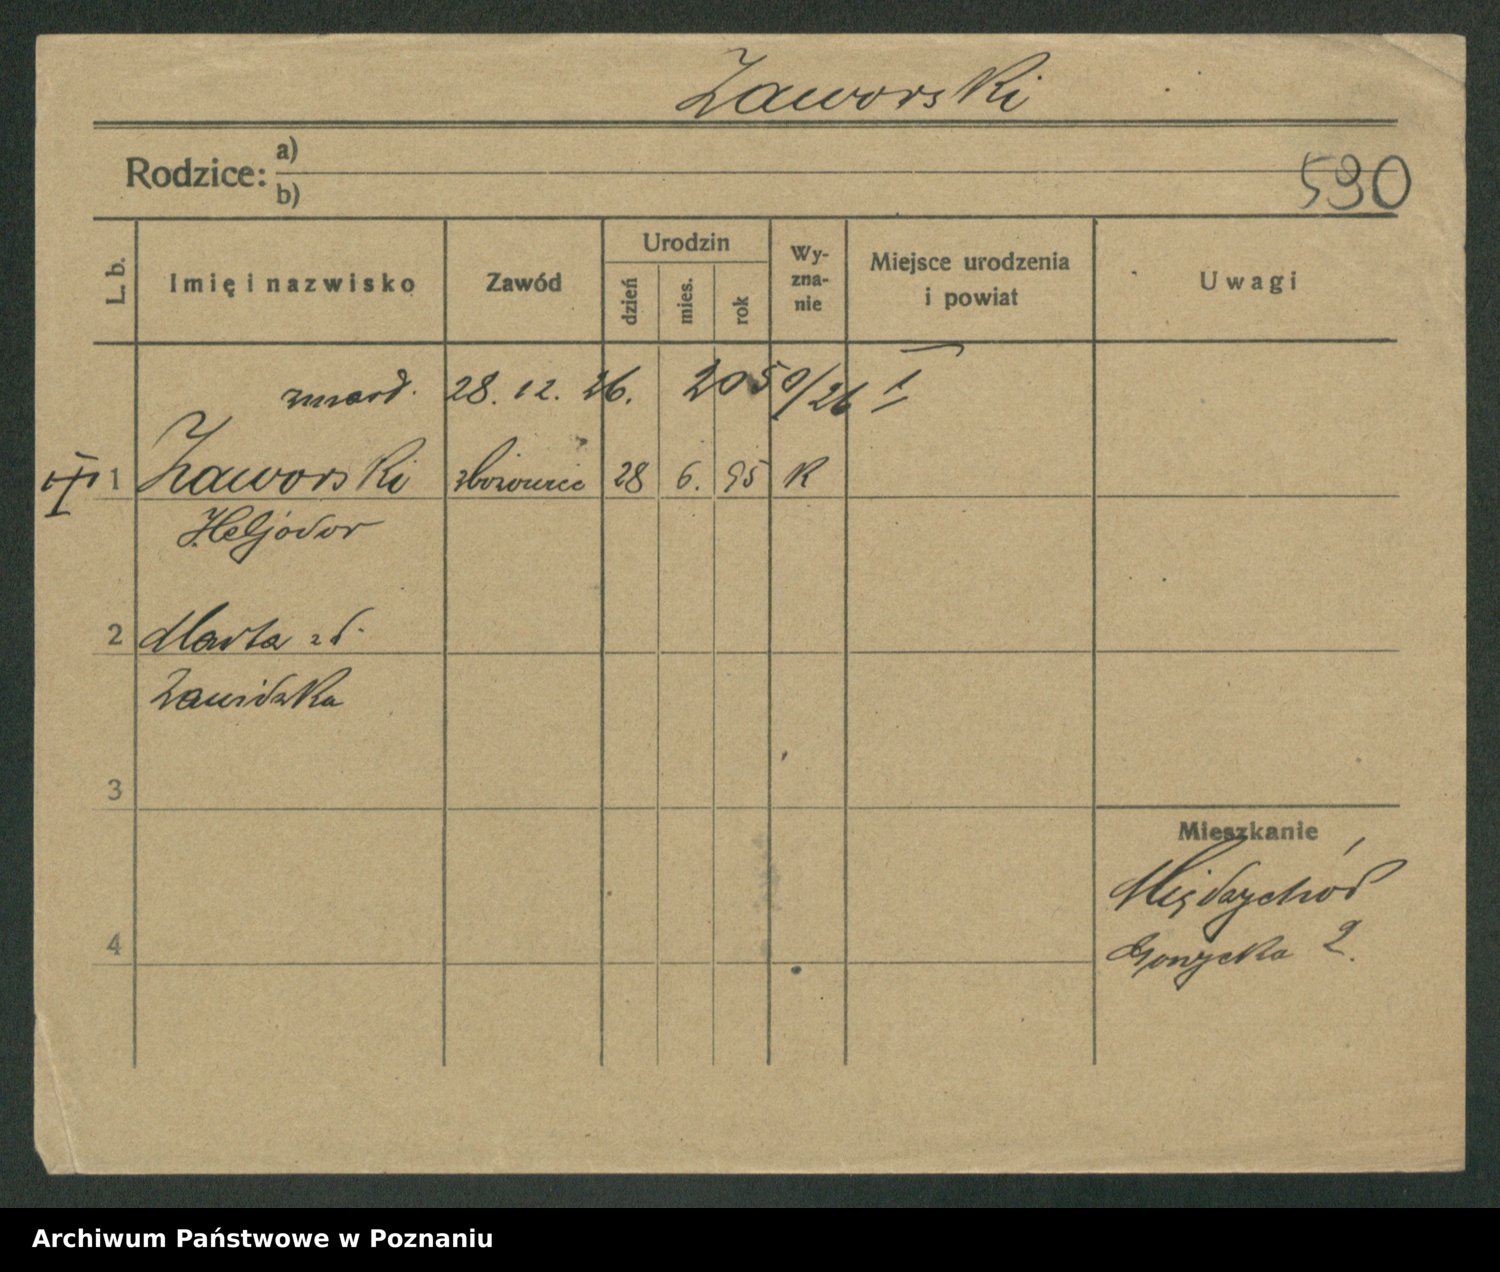 Zaworski
Rodzice: a)
b)
590
L. b.
Imię i nazwisko
Zawód
Urodzin
dzień
mies.
rok
Wy-
zna-
nie
Miejsce urodzenia
i powiat
Uwagi
zmarł. 28. 12. 26. 2050/26 I
1 Zaworski 28 6. 95 K
Heljodor
2 Marta zd.
Zawidzka
3
4
Mieszkanie
Międzychód
2.
Archiwum Państwowe w Poznaniu